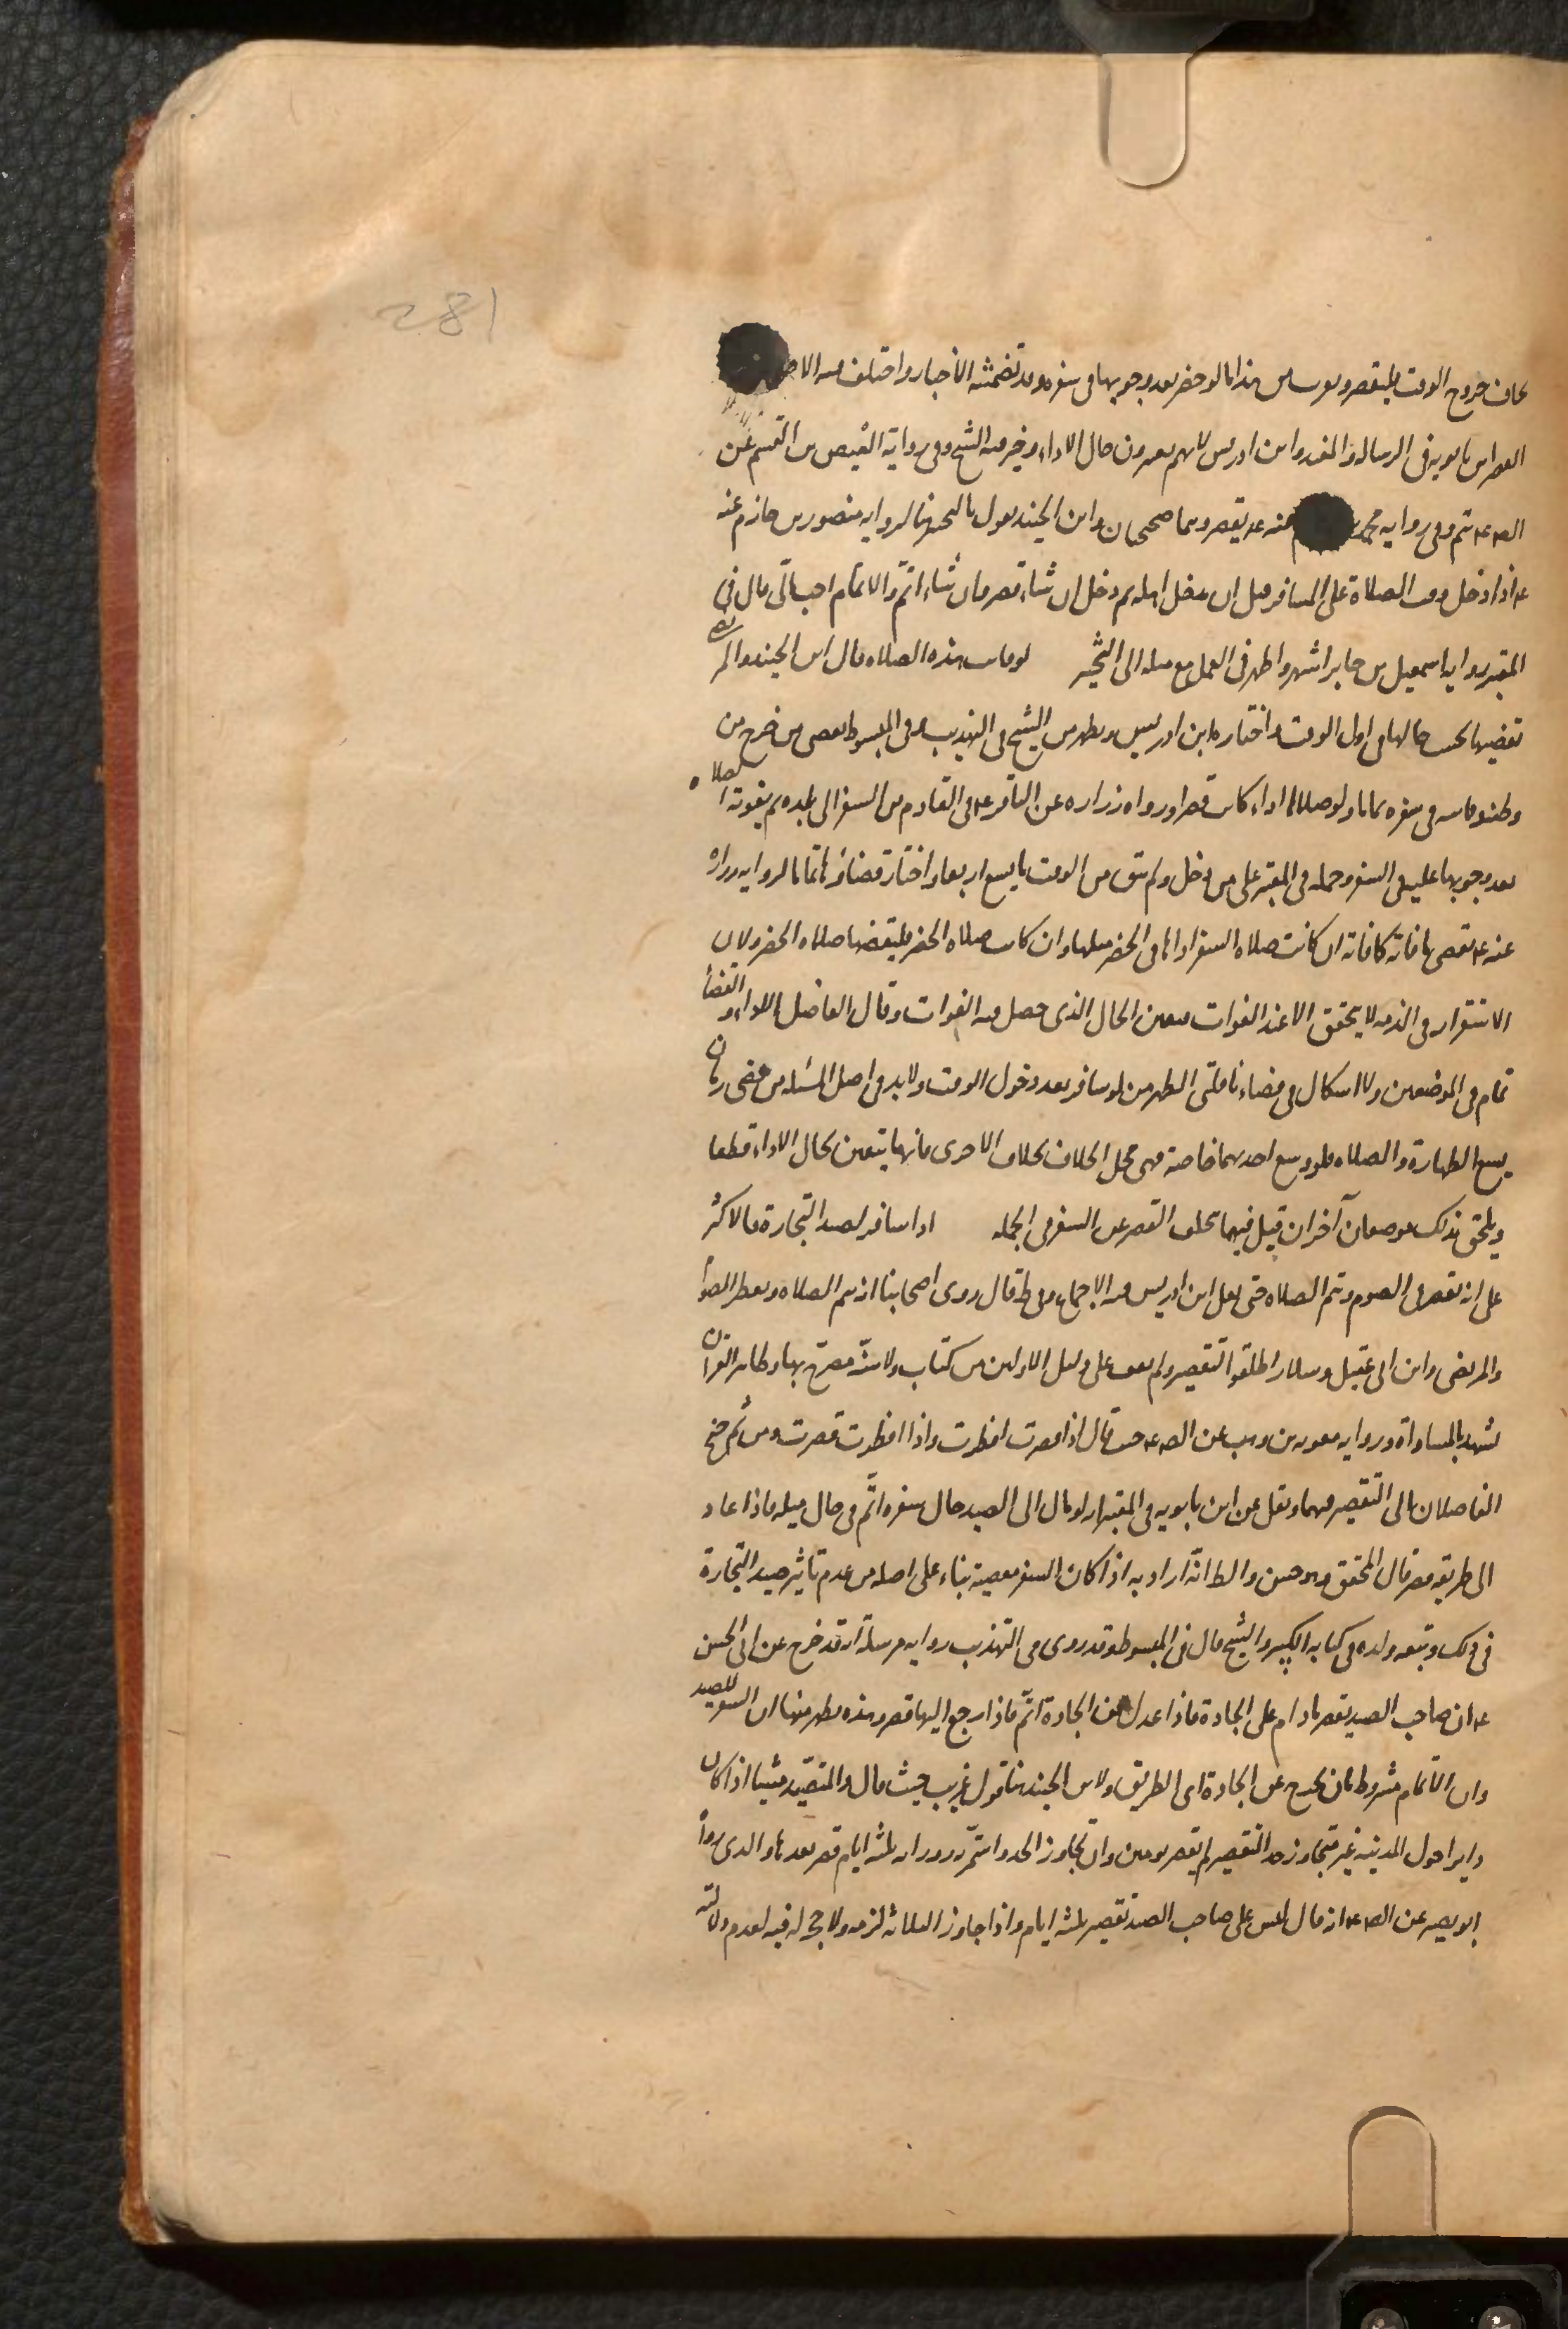 281
يخاف خروج الوقت فليقصر وقرب من هذا ما لو حضر بعد وجوبها في سفره وقد تضمنته الأخبار واختلف فيه الأصحاب
القصر ابن بابويه في الرسالة والمفيد وابن ادريس لانهم يعتبرون حال الاداء وخير فيه الشيخ وفي رواية العيص بن القسم عن
الص ع يتم وفي رواية محمد بن مسلم عنه ع يقصر وهما صحيحان وابن الجنيد يقول بالتخيير هنا لرواية منصور بن حازم عنه
ع اذا دخل وقت الصلاة على المسافر قبل ان يدخل اهله ثم دخل ان شاء قصر وان شاء اتم والاتمام احب الي قال في
المعتبر رواية اسمعيل بن جابر اشهر واظهر في العمل مع ميله الى التخيير لو فاتت هذه الصلاة قال ابن الجنيد والمرتضى
تقضيها بحسب حالها في اول الوقت واختاره ابن ادريس ويظهر من الشيخ في التهذيب وفي المبسوط يقضي من خرج من
وطنه وفاتته في سفره تماما ولو صلاها اداء كانت قصرا ورواه زراره عن الباقر ع في القادم من السفر الى بلده ثم يفوته الصلاة
بعد وجوبها عليه في السفر وحمله في المعتبر على من دخل ولم يبق من الوقت ما يسع اربعا واختار قضاؤها تماما لرواية زرارة
عنه ع يقضي ما فاته كما فاته ان كانت صلاة السفر اداها في الحضر مثلها وان كانت صلاة الحضر فليقضها صلاة الحضر ولان
الاستقرار في الذمة لا يتحقق الا عند الفوات فيتعين الحال الذي حصل فيه الفوات وقال الفاضل الاداء والقضاء
تمام في الموضعين ولا اشكال في قضاء نافلتي الظهرين لو سافر بعد دخول الوقت ولا بد في اصل المسئلة من مضي زمان
يسع الطهارة والصلاة فلو وسع احديهما خاصة فهي محل الخلاف بخلاف الاخرى فانها يتعين بحال الاداء قطعا
ويلحق بذلك موضعان آخران قيل فيهما تخلف القصر عن السفر في الجملة اذا سافر لصيد التجارة فالاكثر
على انه يقصر في الصوم ويتم الصلاة حتى نقل ابن ادريس فيه الاجماع وفي ط قال روى اصحابنا انه يتم الصلاة ويفطر الصوم
والمرتضى وابن ابي عقيل وسلار اطلقوا التقصير ولم نقف على دليل الاولين من كتاب ولا سنة مصرح بها وظاهر القرآن
يشهد بالمساواة ورواية معوية بن وهب عن الص ع حيث قال اذا قصرت افطرت واذا افطرت قصرت ومن ثم جنح
الفاضلان الى التقصير فيهما ونقل عن ابن بابويه في المعتبر انه لو مال الى الصيد حال سفره اتم في حال ميله فاذا عاد
الى طريقه قصر قال المحقق وهو حسن والظ انه اراد به اذا كان السفر معصية بناء على اصله من عدم تاثير صيد التجارة
في ذلك وتبعه ولده في كتابه الكبير والشيخ قال في المبسوط وقد روى في التهذيب رواية مرسلة انه قد خرج عن ابي الحسن
ع ان صاحب الصيد يقصر ما دام على الجادة فاذا عدل عن الجادة اتم فاذا رجع اليها قصر وهذه يظهر منها ان السفر للصيد
وان الاتمام مشروط بان يخرج عن الجادة اي الطريق ولابن الجنيد هنا قول غريب حيث قال والمتصيد مشيا اذا كان
دايرا حول المدينة غير متجاوز حد التقصير لم يقصر يومين وان تجاوز الحد واستمر به دورانه ثلثة ايام قصر بعدها والذي رواه
ابو بصير عن الص ع انه قال ليس على صاحب الصيد تقصير ثلثة ايام واذا جاوز الثلاثة لزمه ولا حجة له فيه لعدم دلالته